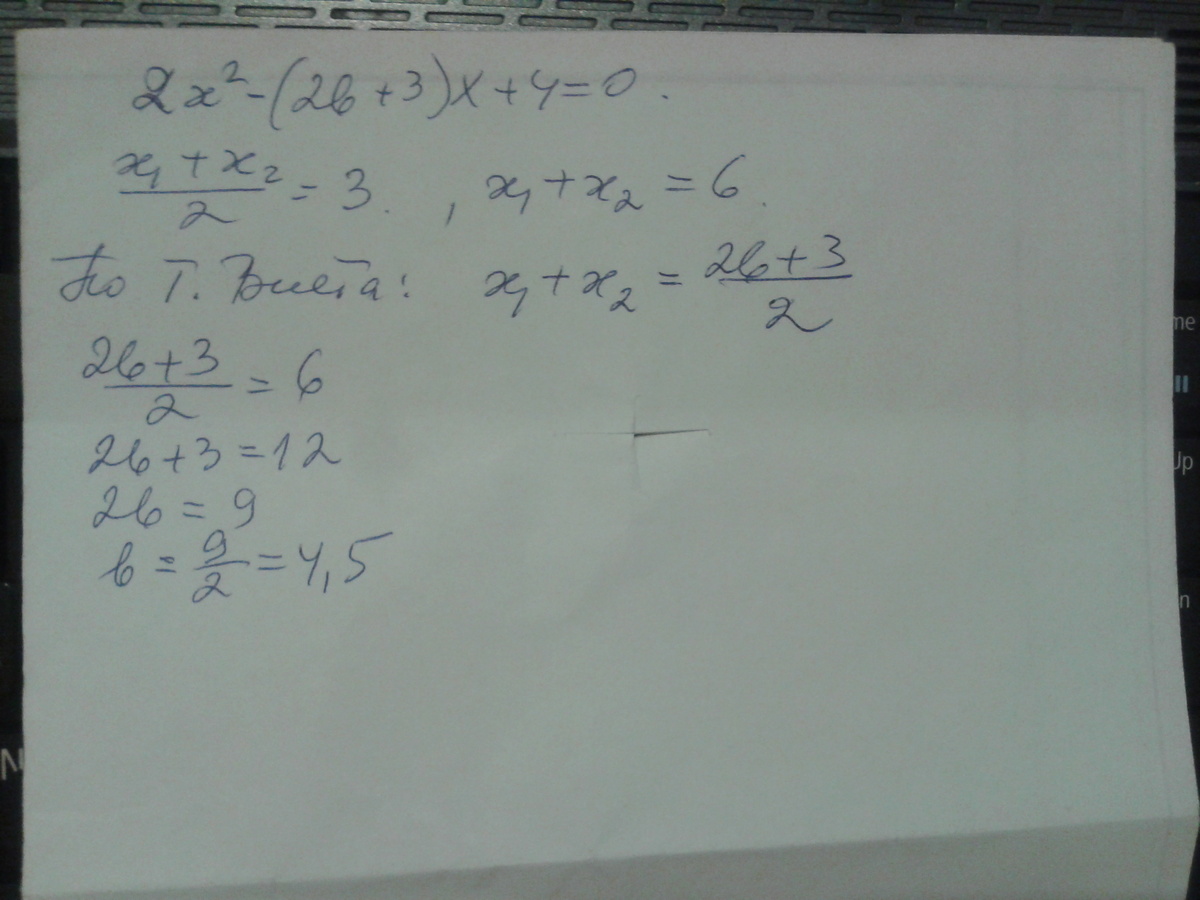 2x² - (2b + 3)x + 4 = 0.
(x₁ + x₂)/2 = 3. , x₁ + x₂ = 6.
По Т. Виета: x₁ + x₂ = (2b + 3)/2
(2b + 3)/2 = 6
2b + 3 = 12
2b = 9
b = 9/2 = 4,5
me
II
Up
n
N